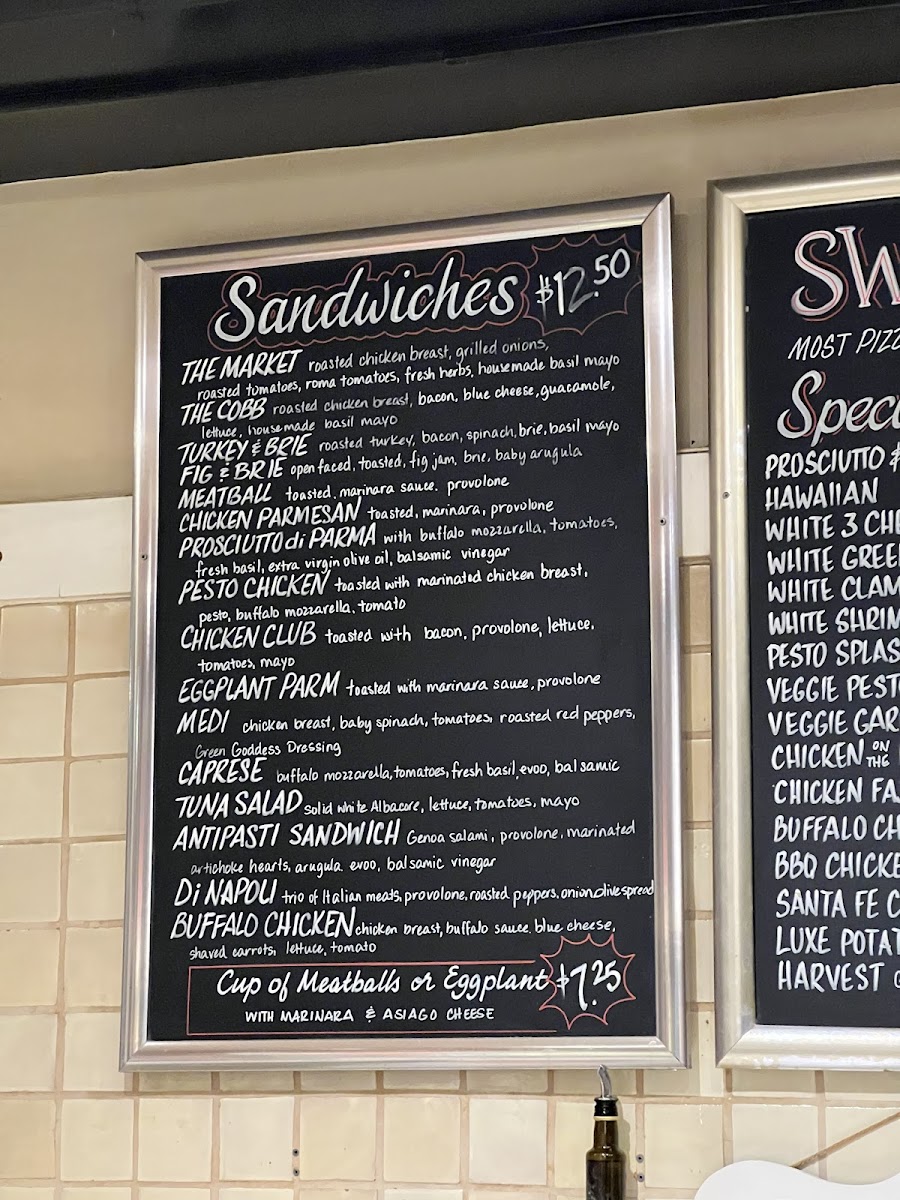 Sandwiches $12.50
THE MARKET roasted chicken breast, grilled onions,
roasted tomatoes, roma tomatoes, fresh herbs, housemade basil mayo
THE COBB roasted chicken breast, bacon, blue cheese, guacamole,
lettuce, housemade basil mayo
TURKEY & BRIE roasted turkey, bacon, spinach, brie, basil mayo
FIG & BRIE open faced, toasted, fig jam, brie, baby arugula
MEATBALL toasted, marinara sauce, provolone
CHICKEN PARMESAN toasted, marinara, provolone
PROSCIUTTO di PARMA with buffalo mozzarella, tomatoes,
fresh basil, extra virgin olive oil, balsamic vinegar
PESTO CHICKEN toasted with marinated chicken breast,
pesto, buffalo mozzarella, tomato
CHICKEN CLUB toasted with bacon, provolone, lettuce,
tomatoes, mayo
EGGPLANT PARM toasted with marinara sauce, provolone
MEDI chicken breast, baby spinach, tomatoes, roasted red peppers,
Green Goddess Dressing
CAPRESE buffalo mozzarella, tomatoes, fresh basil, evoo, balsamic
TUNA SALAD solid white Albacore, lettuce, tomatoes, mayo
ANTIPASTI SANDWICH Genoa salami, provolone, marinated
artichoke hearts, arugula, evoo, balsamic vinegar
Di NAPOLI trio of Italian meats, provolone, roasted peppers, onion, olive spread
BUFFALO CHICKEN chicken breast, buffalo sauce, blue cheese,
shaved carrots, lettuce, tomato
Cup of Meatballs or Eggplant $7.25
WITH MARINARA & ASIAGO CHEESE
MOST PIZZ
Spec
PROSCIUTTO
HAWAIIAN
WHITE 3 CHE
WHITE GREE
WHITE CLAM
WHITE SHRIM
PESTO SPLAS
VEGGIE PEST
VEGGIE GAR
CHICKEN ON THE
CHICKEN FA
BUFFALO CH
BBQ CHICKE
SANTA FE C
LUXE POTAT
HARVEST